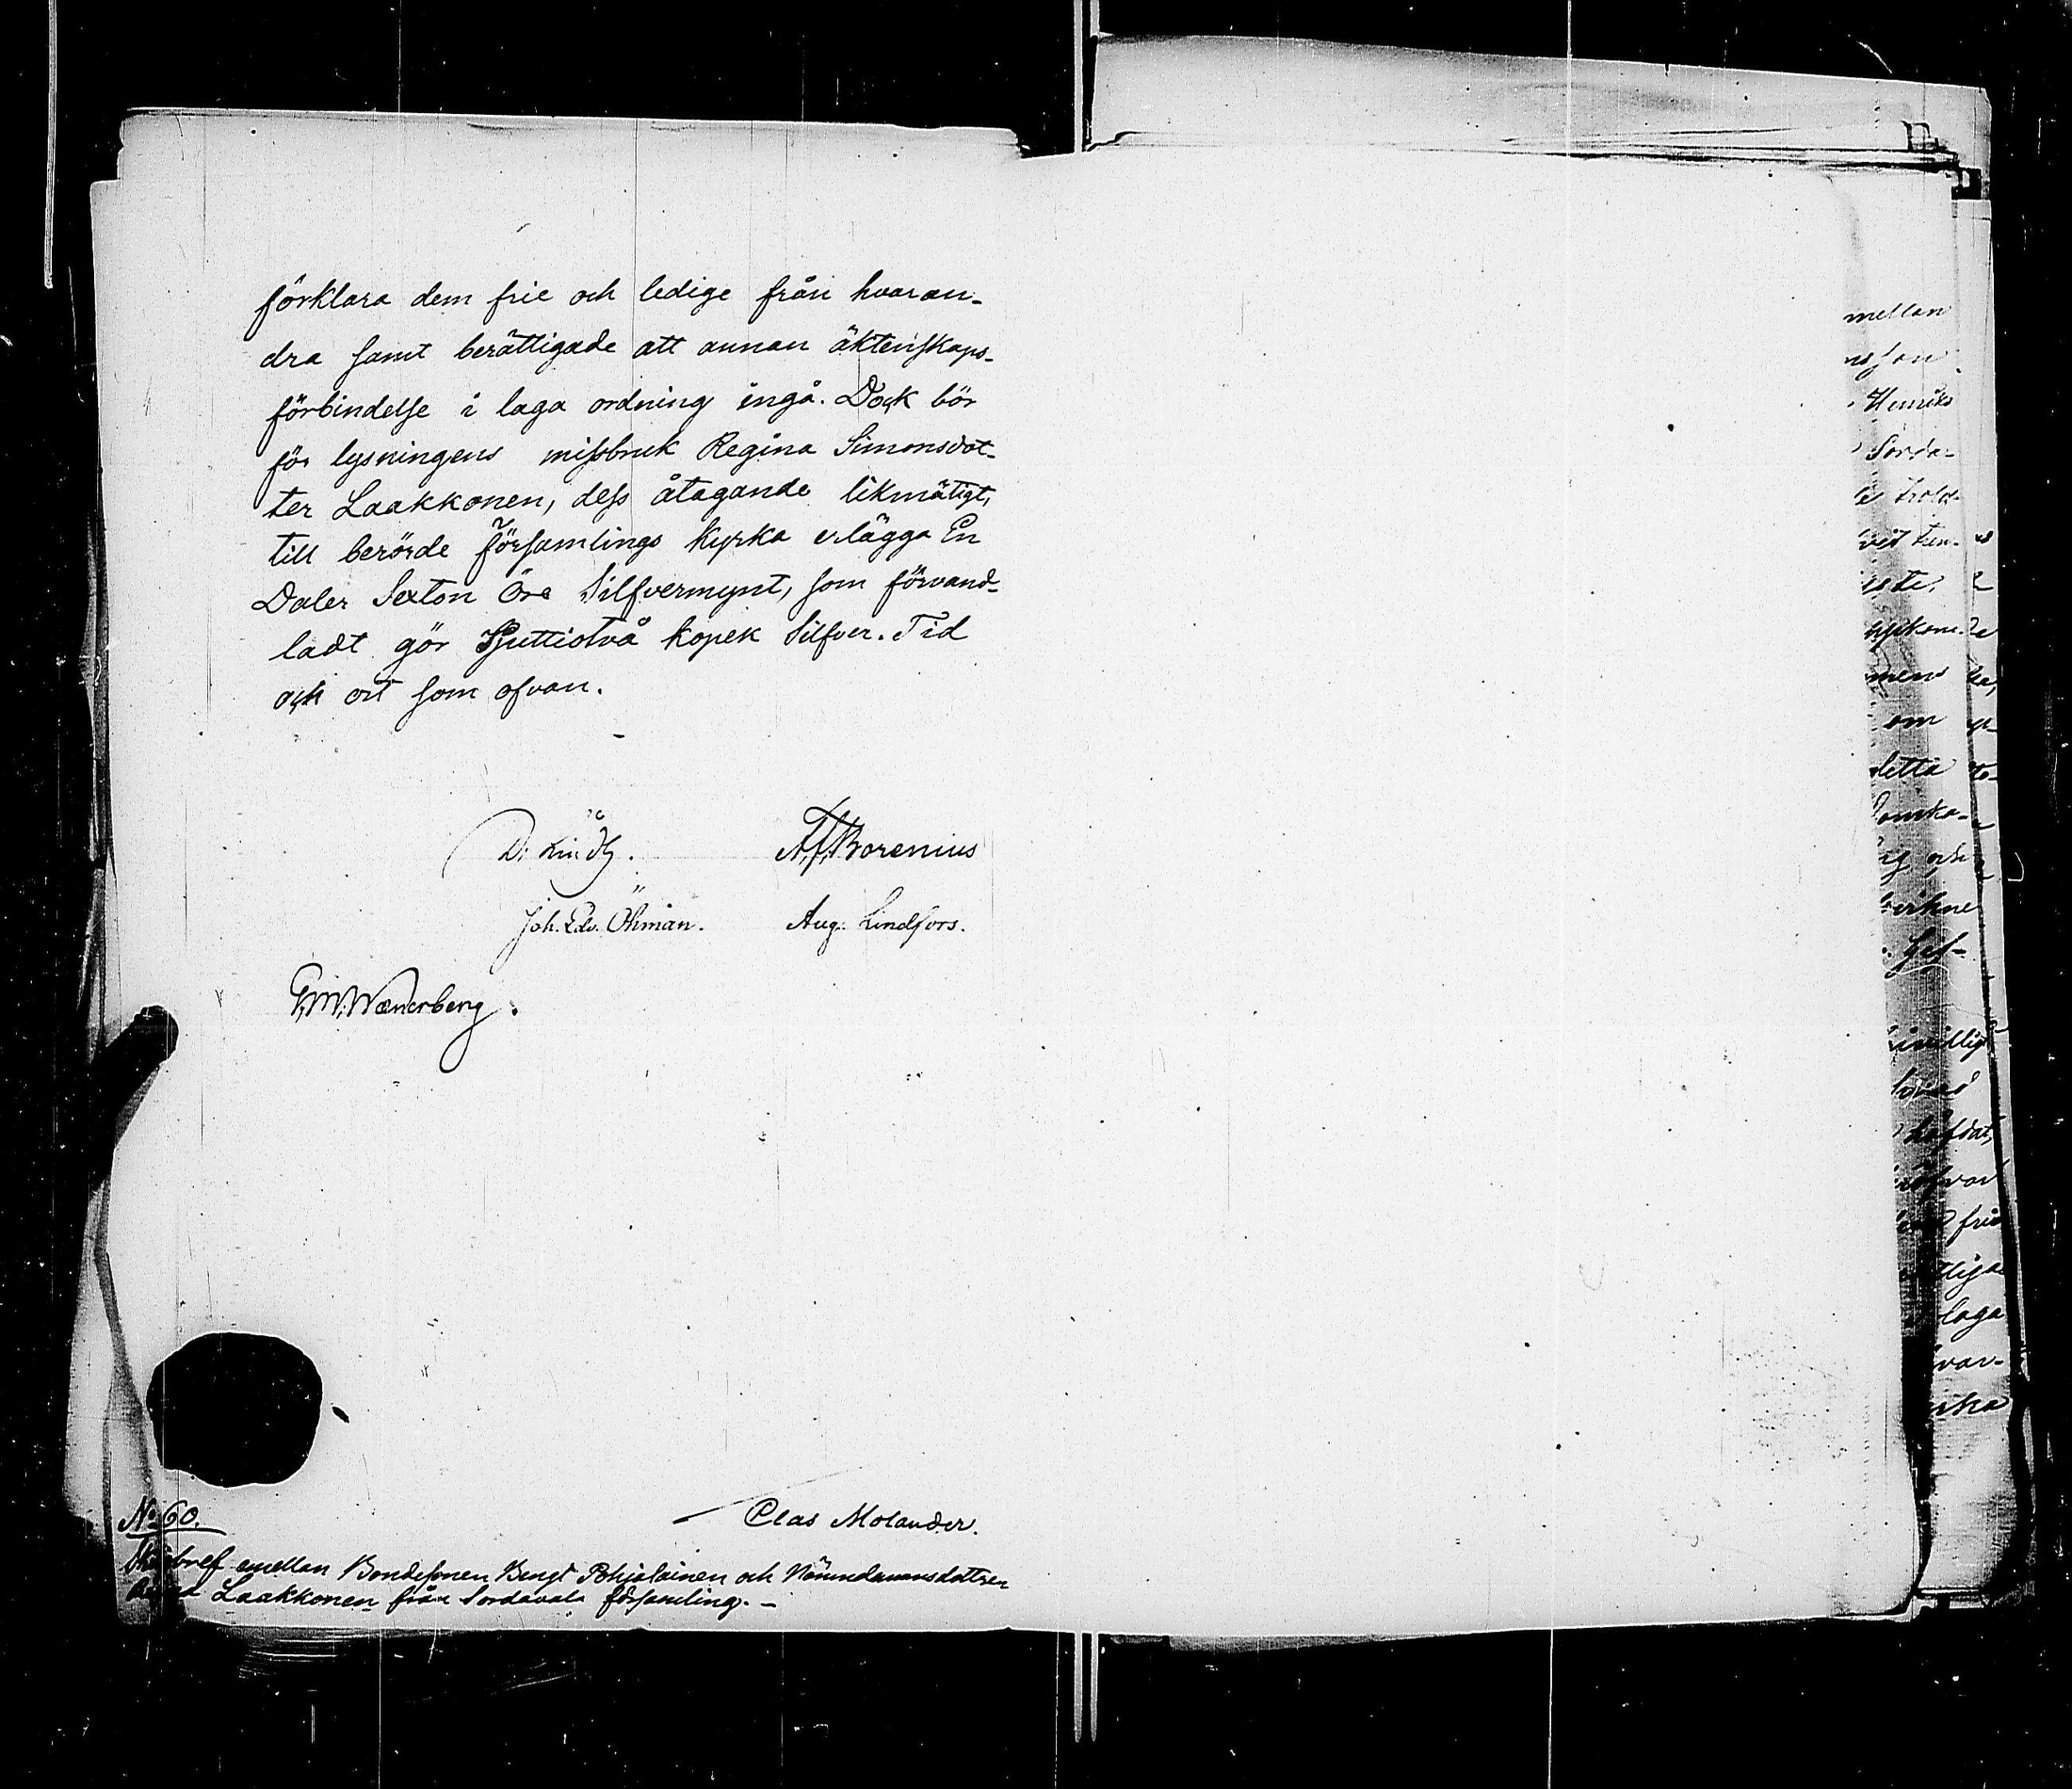 förklara dem frie och ledige från hvaran-
dra samt berättigade att annan äktenskaps-
förbindelse i laga ordning ingå. Dock bör
för lysningens missbruk Regina Simonsdot-
ter Laakkonen, dess åtagande likmätigt,
till berörde församlings kyrka erlägga En
Daler Sexton Öre Silfvermynt, som förvand-
ladt gör Sjuttiotvå kopek Silfver. Tid
och ort som ofvan.
A. F. Borenius
Joh. Edv. Öhman. Aug. Lindfors.
G. W. Wænerberg.
Clas Molander.
No 60.
emellan Bondesonen Bengt Pohjolainen och Nämndemansdottren
Laakkonen från Sordavala församling.-
mellan
Henriks
Sorda-
om
detta
och
frie
laga